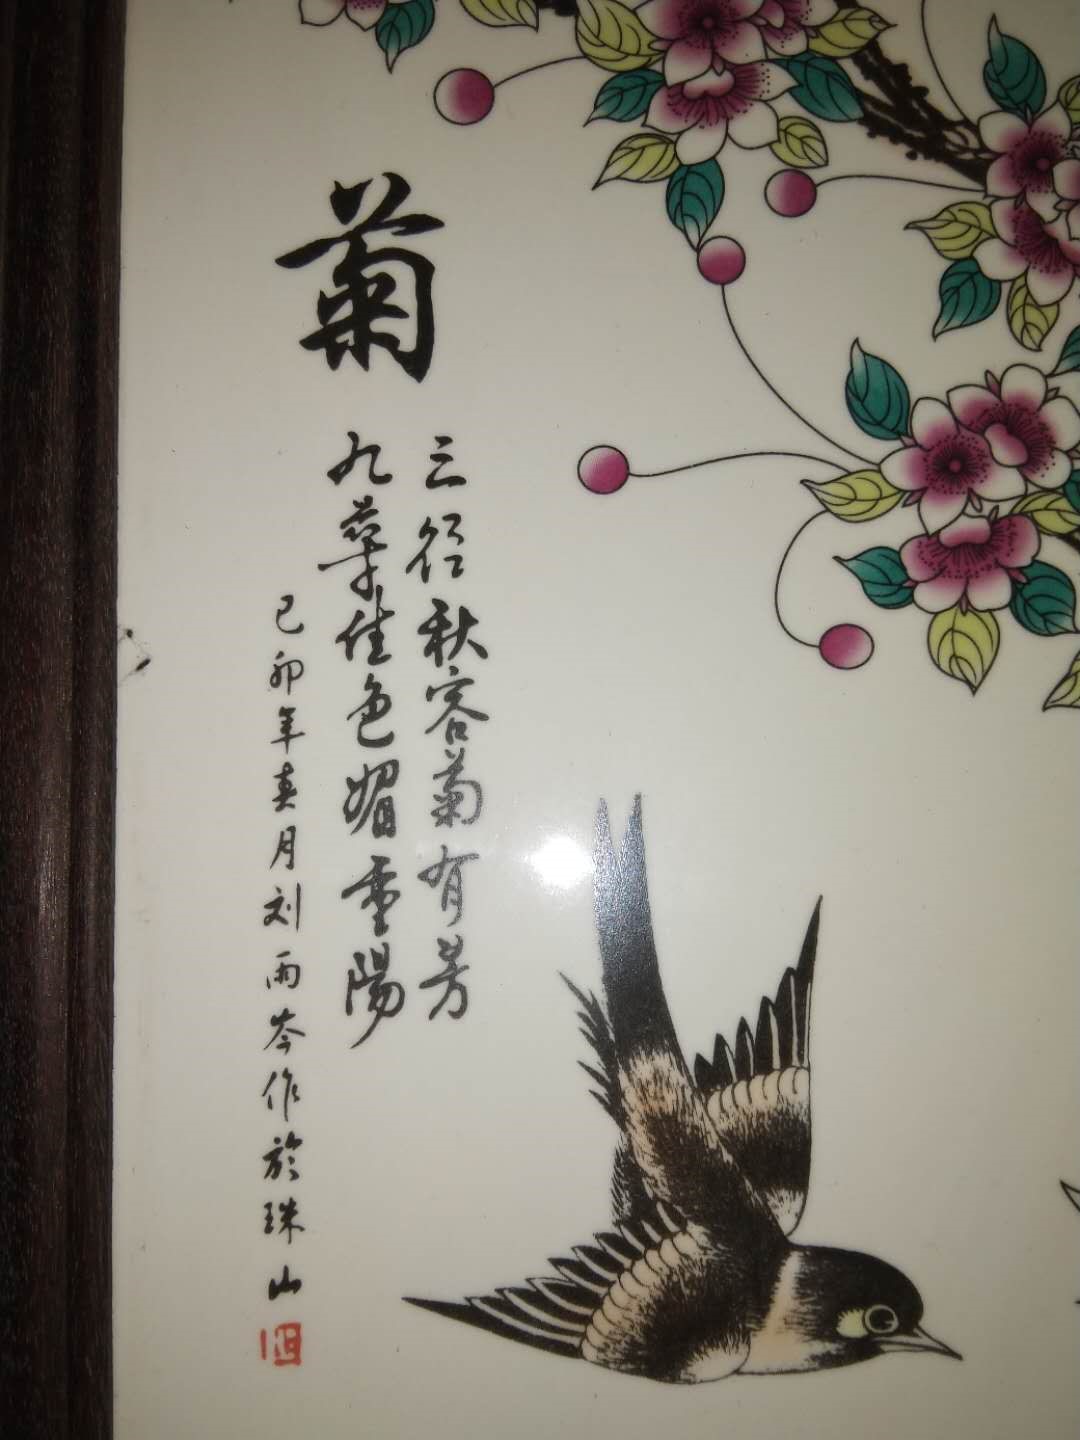 菊
三径秋容菊有芳
九華佳色媚重陽
己卯年真月刘雨岑作於珠山